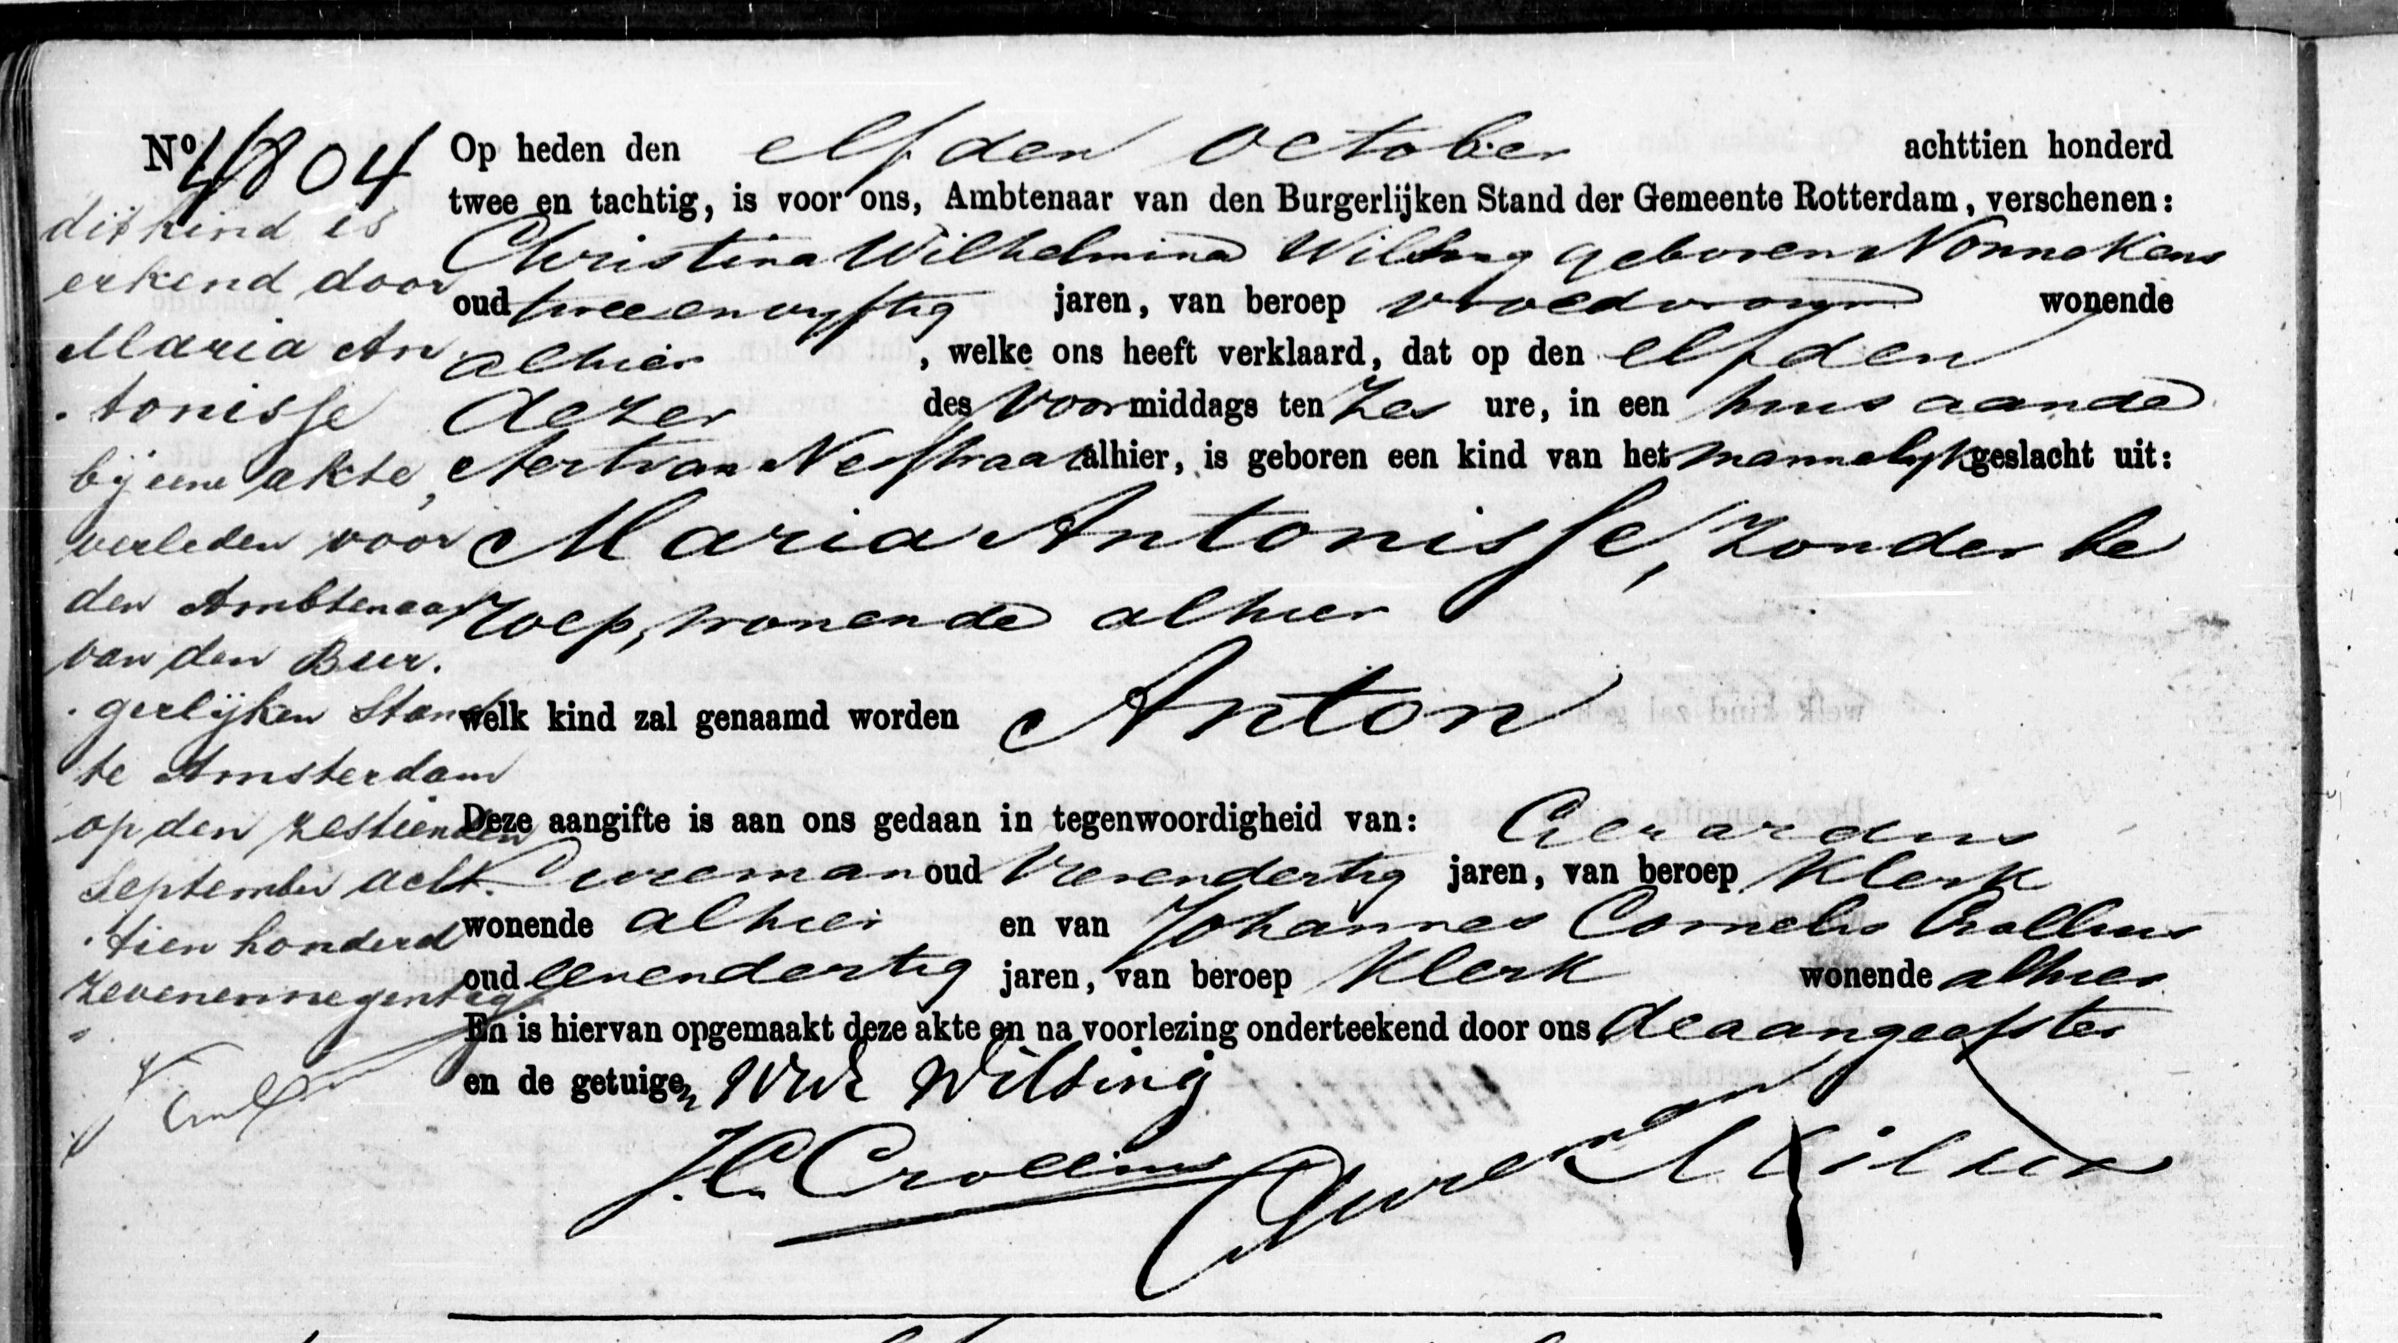 Nº 4804
dit kind is
erkend door
Maria An
tonisse
bij eene akte,
verleden voor
den Ambtenaar
van den Bur.
gerlijken Stand
te Amsterdam
op den zestienden
September acht.
tien honderd
zevenennegentig
Op heden den elfden October achttien honderd
twee en tachtig, is voor ons, Ambtenaar van den Burgerlijken Stand der Gemeente Rotterdam, verschenen:
Christina Wilhelmina Wilsing geboren Nonnekens
oud tweeenvyftig jaren, van beroep vroedvrouw wonende
alhier, welke ons heeft verklaard, dat op den elfden
dezer des Voormiddags ten Zes ure, in een huis aande
Aert van Nesstraat alhier, is geboren een kind van het mannelyk geslacht uit:
Maria Antonisse, zonder be
roep, wonende alhier
welk kind zal genaamd worden Anton
Deze aangifte is aan ons gedaan in tegenwoordigheid van: Gerardus
Bureman oud Vierendertig jaren, van beroep Klerk
wonende alhier en van Johannes Cornelis Crollius
oud eenendertig jaren, van beroep Klerk wonende alhier
En is hiervan opgemaakt deze akte en na voorlezing onderteekend door ons, de aangeefster
en de getuigen
Wed Wilsing
J.C. Crollius